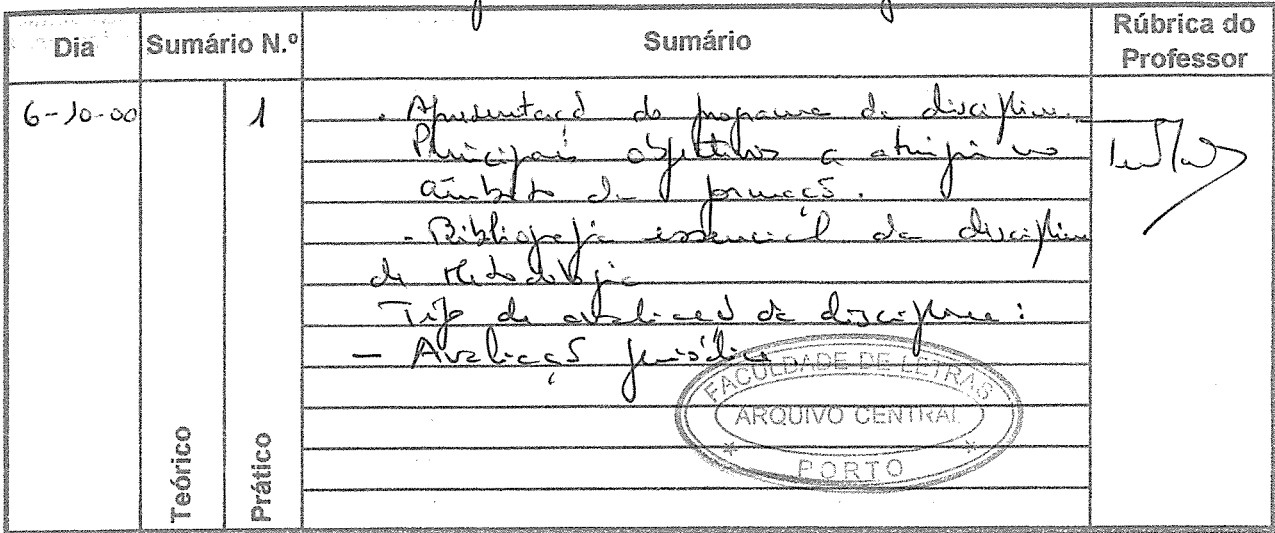 Dia Sumário N.º Sumário Rúbrica do Professor
6-10-00 1 - Apresentação do programa da disciplina.
Principais objectivos a atingir no
âmbito da formação.
- Bibliografia essencial da disciplina
de Metodologia
Tipo de avaliação da disciplina:
- Avaliação periódica
Teórico
Prático
FACULDADE DE LETRAS
ARQUIVO CENTRAL
PORTO